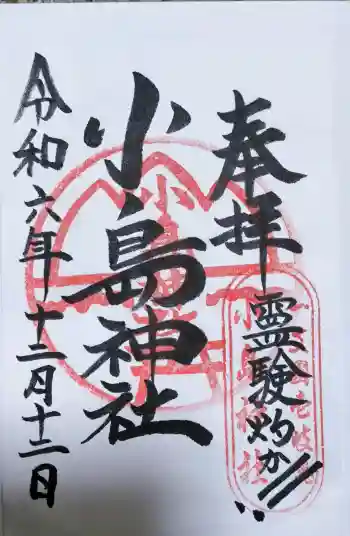 奉拝
霊験灼か
小島神社
令和六年十二月十二日
小島神社